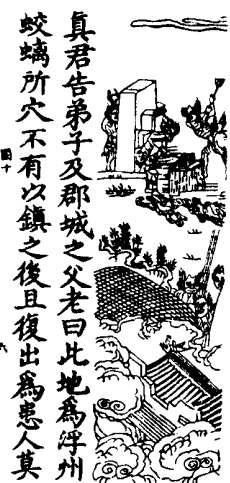 真君告弟子及郡城之父老曰此地爲浮州
蛟螭所穴不有以鎮之後且復出爲患人莫
圖十